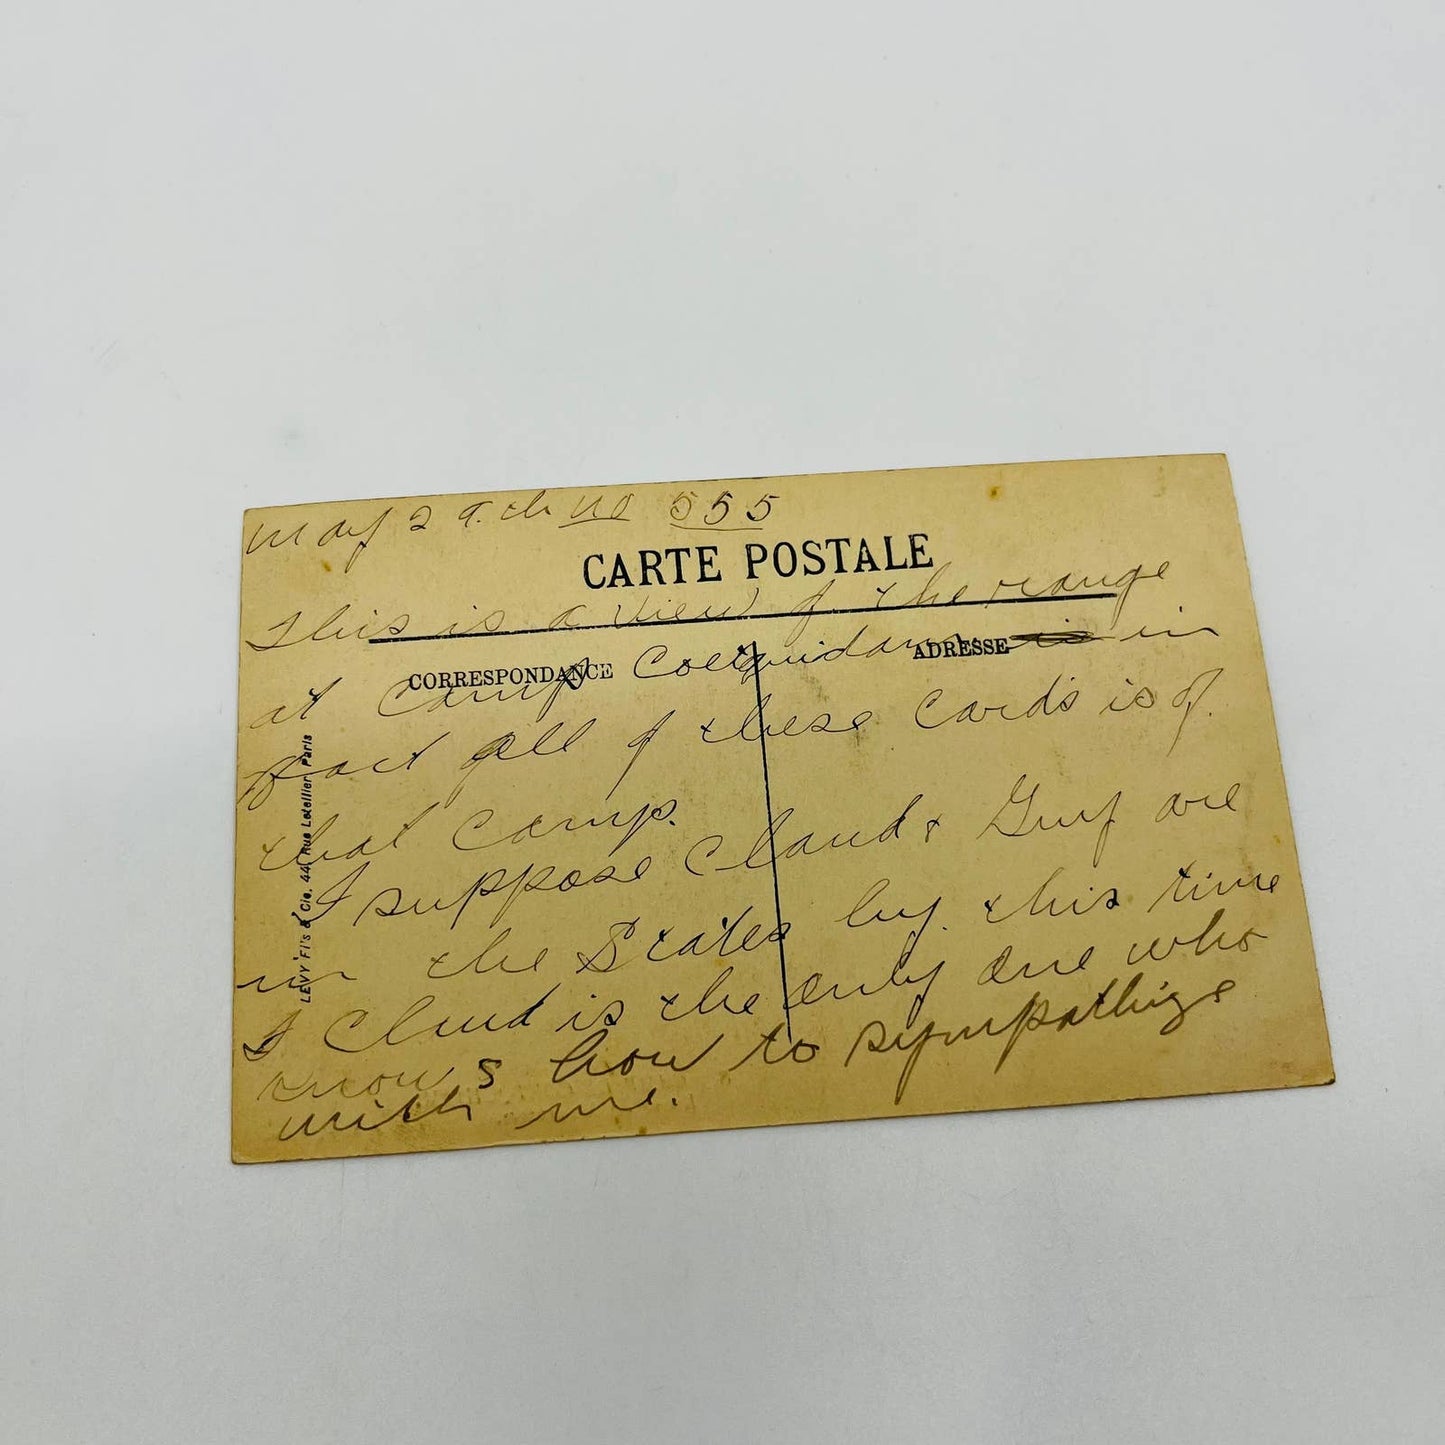 May 2 9.ch no 555
CARTE POSTALE
This is a view of the range
CORRESPONDANCE
ADRESSE
at Camp Coetquidan is in
fact all of these Cards is of
that Camp.
I suppose Claud & Guy are
in the States by this time
I Claud is the only one who
knows how to sympathize
with me.
LEVY Fi's & Cie, 44, Rue Letellier, Paris